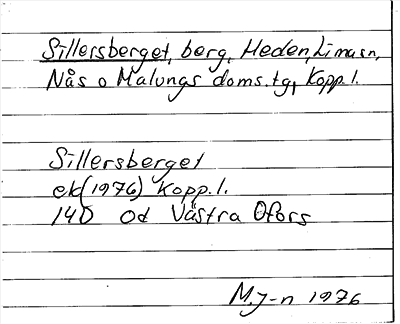 Sillersberget, berg, Heden, Lima sn,
Nås o Malungs doms. tg, Kopp. l.
Sillersberget
ek (1976) Kopp. l.
14D Od Västra Ofors
M. J-n 1976